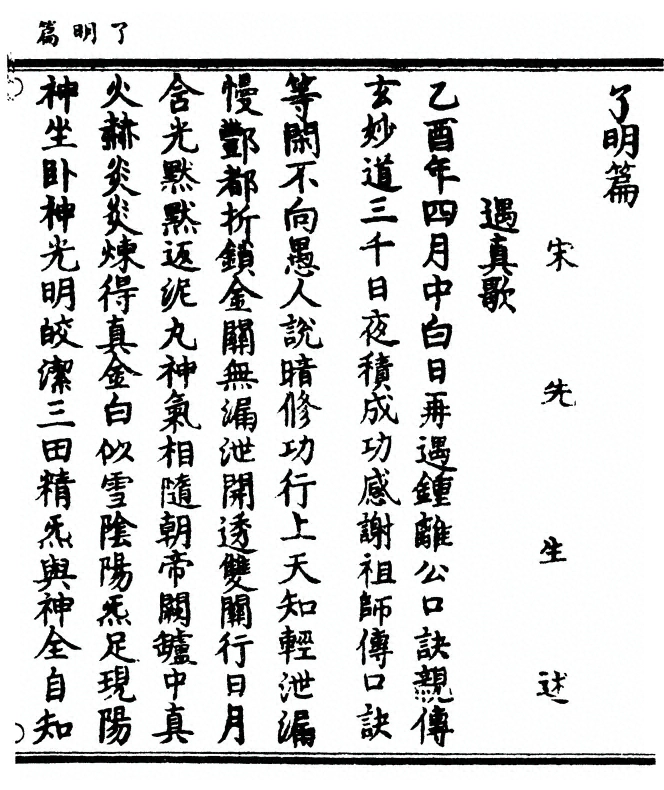 了明篇
了明篇
宋先生述
遇真歌
乙酉年四月中白日再遇鍾離公口訣親傳
玄妙道三千日夜積成功感謝祖師傳口訣
等閑不向愚人說暗修功行上天知輕泄漏
慢酆都折鎖金關無漏泄開透雙關行日月
含光默默返泥丸神氣相隨朝帝闕鑪中真
火赫炎炎煉得真金白似雪陰陽炁足現陽
神坐卧神光明皎潔三田精炁與神全自知